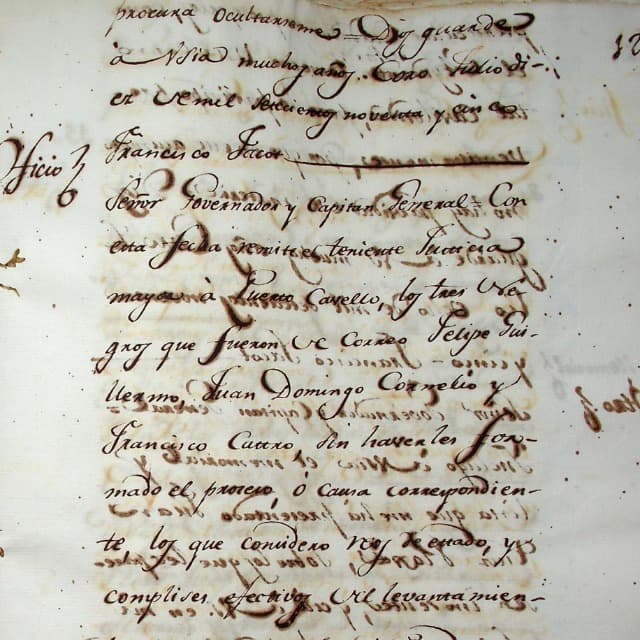 procura ocultarseme = Dios guarde
à Vsia muchos años. Coro Julio di-
ez de mil setecientos noventa y cinco
Francisco Jacot
Oficio
Señor Governador y Capitan General = Con
esta fecha remite el teniente Justicia
mayor à Puerto Cavello, los tres Ne-
gros que fueron de Correo Felipe Gui-
llermo, Juan Domingo Cornelio y
Francisco Castro sin haverles for-
mado el proceso, ò causa correspondien-
te los que considero Reos de estado, y
complises efectivos del levantamien-